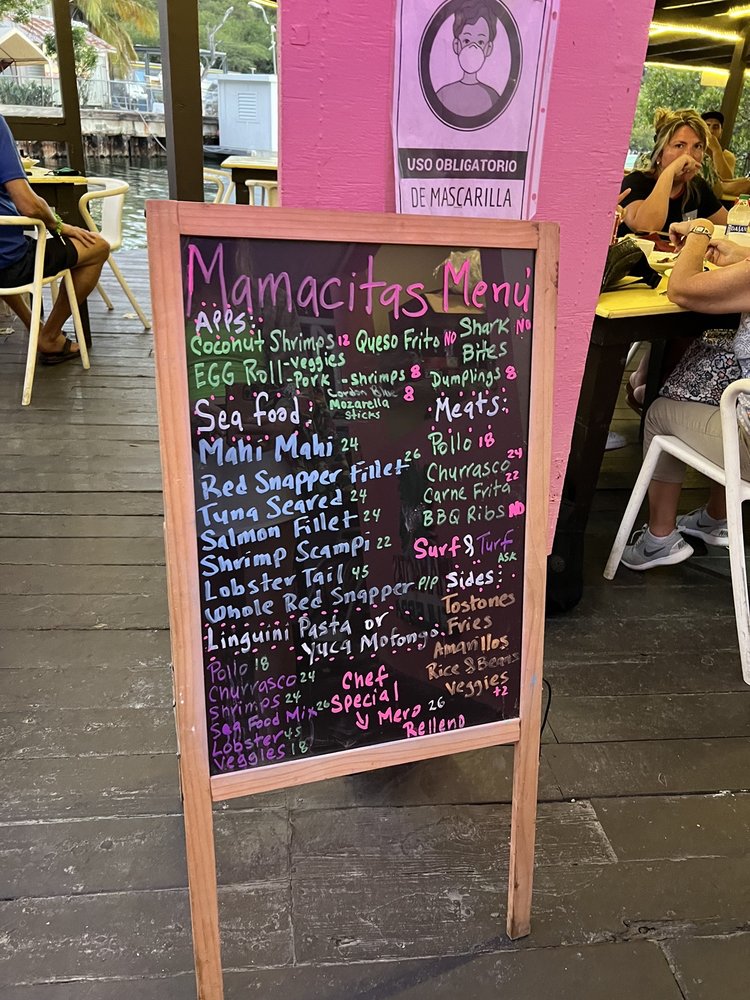 USO OBLIGATORIO
DE MASCARILLA
Mamacitas Menú
Apps:
Coconut Shrimps 12 Queso Frito NO Shark NO
Bites
EGG Roll-veggies
-Pork -shrimps 8 Dumplings 8
Cordon Blue 8
Mozarella
sticks
Sea food:
Mahi Mahi 24
Red Snapper Fillet 26
Tuna Seared 24
Salmon Fillet 24
Shrimp Scampi 22
Lobster Tail 45
Whole Red Snapper P/P
Meats:
Pollo 18
Churrasco 24
Carne Frita 22
BBQ Ribs NO
Surf & Turf
ASK
Sides:
Tostones
Fries
Amarillos
Rice & Beans
Veggies +2
Linguini Pasta or
Yuca Mofongo
Pollo 18
Churrasco 24
Shrimps 24
Sea Food Mix 26
Lobster 45
Veggies 18
Chef
Special
Mero 26
Relleno